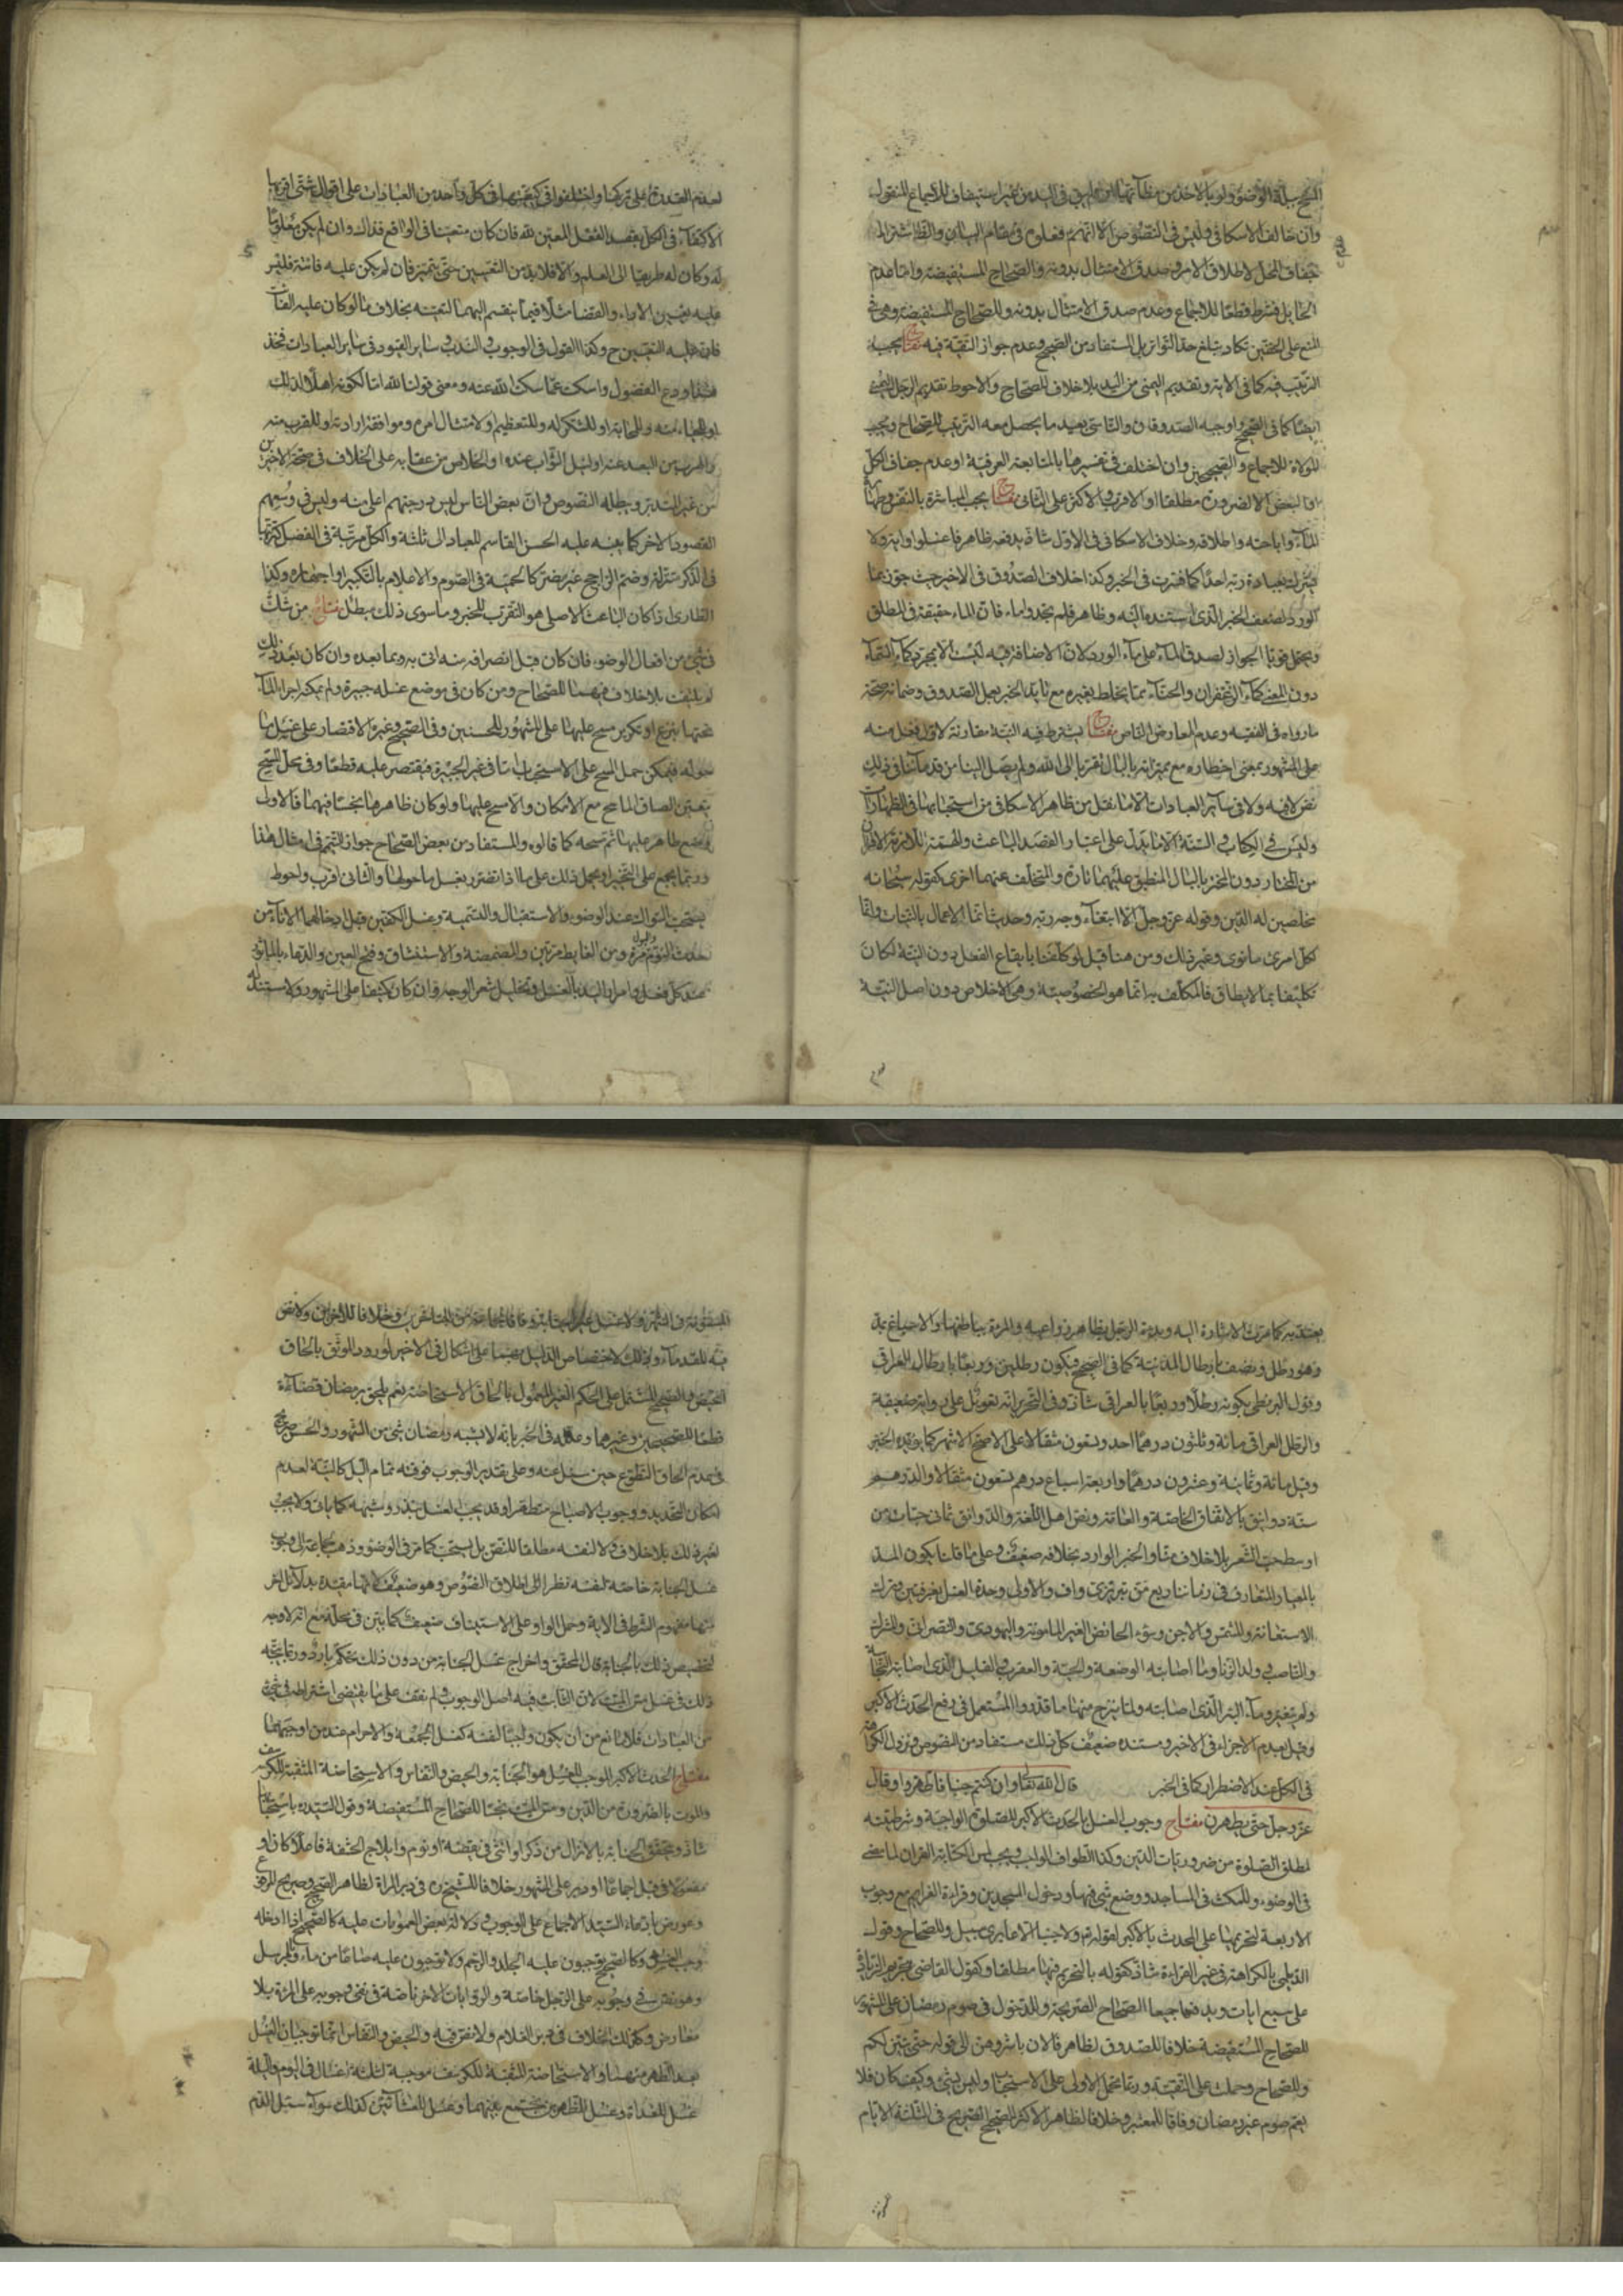 المسح ببلة الوضوء ولو بالاخذ من مظانها ان لم يبق في اليد من غير استيناف للاجماع المنقول
وان خالف الاسكافي وليس في النصوص الا انهم فعلوه في مقام البيان والظ اشتراط
جفاف المحل لاطلاق الامر وصدق الامتثال بدونه والصحاح المستفيضة واما عدم
الحايل فشرط قطعا للاجماع وعدم صدق الامتثال بدونه وللصحاح المستفيضة وهي في
المنع على الخفين تكاد تبلغ حد التواتر بل المستفاد من الصحيح وعدم جواز التقية فيه مفتاح يجب
الترتيب فيه كما في الاية وتقديم اليمنى من اليد بلا خلاف للصحاح والاحوط تقديم الرجل اليمنى
ايضا كما في الصحيح واوجبه الصدوقان والناسي يعيد ما يحصل معه الترتيب للصحاح ويجب
الموالاة للاجماع والصحيحين وان اختلف في تفسيرها بالمتابعة العرفية او عدم جفاف الكل
او البعض الا لضرورة مطلقا او الاقرب والاكثر على الثاني مفتاح يجب المباشرة بالنفس وطهارة
الماء واباحته واطلاقه وخلاف الاسكافي في الاول شاذ يدفعه ظاهر فاغسلوا وايته ولا
يشرك بعبادة ربه احدا كما فسرت في الخبر وكذا خلاف الصدوق في الاخير حيث جوز بماء
الورد لضعف الخبر الذي استند اليه وظاهر فلم تجدوا ماء فان الماء حقيقة في المطلق
ويحتمل قويا الجواز لصدق الماء على ماء الورد لان الاضافة فيه ليست الا لمجرد كماء السماء
دون المعنى كماء الزعفران والحناء مما يخلط بغيره مع تايد الخبر بعمل الصدوق وضمانه صحة
ما رواه في الفقيه وعدم المعارض الناص مفتاح يشترط فيه النية مقارنة لاول فعل منه
على المشهور بمعنى اخطاره مع مميزاته بالبال تقربا الى الله ولم يصل الينا من قدمائنا في ذلك
نص لا فيه ولا في سائر العبادات الا ما نقل من ظاهر الاسكافي من استحبابها في الطهارات
وليس في الكتاب والسنة الا ما يدل على اعتبار القصد الباعث والهمة اللازمة لافعال
من المختار دون المخطر بالبال المنطبق عليهما تارة والمتخلف عنهما اخرى كقوله سبحانه
مخلصين له الدين وقوله عز وجل الا ابتغاء وجه ربه وحديث انما الاعمال بالنيات وانما
لكل امرئ ما نوى وغير ذلك ومن هنا قيل لو كلفنا بايقاع الفعل دون النية لكان
تكليفا بما لا يطاق فالمكلف به انما هو الخصوصية وهي الاخلاص دون اصل النية
لعدم القدرة على تركها واختلفوا في كيفيتها في كل واحد من العبادات على اقوال شتى اقربها
الاكتفاء في الكل بقصد الفعل المعين لله فان كان متعينا في الواقع فذاك وان لم يكن معلوما
له وكان له طريق الى العلم والا فلابد من التعيين حتى يتميز فان لم يكن عليه فائتة فليس
عليه تعيين الاداء والقضاء مثلا فيما ينقسم اليهما لتعينه بخلاف ما لو كان عليه الفائت
فان عليه التعيين ح وكذا القول في الوجوب والندب وساير القيود في ساير العبادات فخذ
هذا ودع الفضول واسكت عما سكت الله عنه ومعنى قولنا لله اما لكونه اهلا لذلك
او للحياء منه والمهابة او للشكر له وللتعظيم ولامتثال امره وموافقة ارادته وللقرب منه
والهرب من البعد عنه او لنيل الثواب عنده او الخلاص من عقابه على الخلاف في صحة الاخيرين
من غير المتدبر ويبطله النصوص وان بعض الناس ليس درجتهم اعلى منه وليس في وسعهم
القصود الاخر كما ينبه عليه الحسن القاسم للعباد الى ثلثة والكل مرتبة في الفضل كترتبها
في الذكر متنزلة وضم الراجح غير مضر كالحمية في الصوم والاعلام بالتكبير او اجهاره وكذا
الطاري اذا كان الباعث الاصلي هو التقرب للخبر وما سوى ذلك مبطل مفتاح من شك
في شيء من افعال الوضوء فان كان قبل انصرافه منه اتى به وبما بعده وان كان بعد ذلك
لم يلتفت بلا خلاف فيهما للصحاح ومن كان في موضع غسله جبيرة ولم يمكنه اجراء الماء
تحتها بنزع او تكرير مسح عليها على المشهور للحسنين وفي الصحيح وغيره الاقتصار على غسل ما
حوله فيمكن حمل المسح على الاستحباب اما في غير الجبيرة فيقتصر عليه قطعا وفي محل المسح
يتعين الصاق الماسح مع الامكان والا مسح عليها ولو كان ظاهرها نجسا فيهما فالاولى
وضع طاهر عليها ثم مسحه كما قالوه والمستفاد من بعض الصحاح جواز التيمم في امثال هذا
وربما يجمع على التخيير او يحمل ذلك على ما اذا تضرر بغسل ما حولها والثاني اقرب واحوط
يستحب السواك عند الوضوء والاستقبال والتسمية وغسل الكفين قبل ادخالهما الاناء من
حدث النوم والبول مرة ومن الغايط مرتين والمضمضة والاستنشاق وفتح العين والدعاء بالماثور
عند كل فعل وامرار اليد بالغسل وتخليل شعر الوجه وان كان كثيفا على المشهور ولا مستند
يعتد به كما مرت الاشارة اليه وبدءة الرجل بظاهر ذراعيه والمرءة بباطنها والاسباغ بمد
وهو رطل ونصف بارطال المدينة كما في الصحيح فيكون رطلين وربعا بارطال العراق
وقول البزنطي بكونه رطلا وربعا بالعراقي شاذ وفي التحرير انه تعويل على رواية ضعيفة
والرطل العراقي مائة وثلثون درهما احد وتسعون مثقالا على الاصح الاشهر كما يؤيده الخبر
وقيل مائة وثمانية وعشرون درهما واربعة اسباع درهم تسعون مثقالا والدرهم
ستة دوانيق بالاتفاق الخاصة والعامة ونص اهل اللغة والدوانق ثماني حبات من
اوسط حب الشعير بلا خلاف منا والخبر الوارد بخلافه ضعيف وعلى ما قلنا يكون المد
بالعيار المتعارف في زماننا ربع من تبريزي واف والاولى وحدة الغسل بغرفتين وترك
الاستعانة والمشمس والاجن وسؤر الحائض الغير المامونة واليهودي والنصراني والمشرك
والناصب وولد الزنا وما اصابته الوضعة والحية والعقرب والقليل الذي اصابته النجاسة
ولم يتغير وماء البئر الذي اصابته ولما ينزح منها ما قدروا والمستعمل في رفع الحدث الاكبر
وقيل بعدم الاجزاء في الاخير ومستنده ضعيف كل ذلك مستفاد من النصوص وتزول الكراهة
في الكل عند الاضطرار كما في الخبر قال الله تعالى وان كنتم جنبا فاطهروا وقال
عز وجل حتى يطهرن مفتاح وجوب الغسل بالحدث الاكبر للصلوة الواجبة وشرطيته
لمطلق الصلوة من ضروريات الدين وكذا الطواف الواجب ويجب لمس كتابة القران لما مضى
في الوضوء وللمكث في المساجد ووضع شيء فيها ودخول المسجدين وقراءة العزايم مع وجوب
الاربعة لتحريمها على المحدث بالاكبر لقوله تع ولا جنبا الا عابري سبيل وللصحاح وقول
الديلمي بالكراهة في غير القراءة شاذ كقوله بالتحريم فيها مطلقا وكقول القاضي بتحريم الزيادة
على سبع ايات ويدفعها جميعا الصحاح الصريحة وللدخول في صوم رمضان على المشهور
للصحاح المستفيضة خلافا للصدوق لظاهر فالان باشروهن الى قوله حتى يتبين لكم
وللصحاح وحملت على التقية وربما تحمل الاولى على الاستحباب وليس بشيء وكيف كان فلا
يعم صوم غير رمضان وفاقا للمعتبر وخلافا لظاهر الاكثر للصحيح الصريح في الثلثة الايام
المسنونة في الشهر ولا غسل غير الجنابة وفاقا لجماعة من المتاخرين وخلافا للاخرين ولا نص
فيه للقدماء وذلك لاختصاص الدليل بهما على اشكال في الاخير لورود الموثق بالحاق
الحيض والصحيح المشتمل على الحكم الغير المعمول بالحاق الاستحاضة نعم يلحق برمضان قضاءه
قطعا للصحيحين وغيرهما وعلله في الخبر بانه لا يشبه رمضان شيء من الشهور والحسن صريح
في عدم الحاق التطوع حين سئل عنه وعلى تقدير الوجوب فوقته تمام الليل كالنية لعدم
امكان التحديد ووجوب الاصباح متطهرا وقد يجب الغسل بنذر وشبهه كما ياتي ولا يجب
لغير ذلك بلا خلاف ولا لنفسه مطلقا للنص بل يستحب كما مر في الوضوء وذهب جماعة الى وجوب
غسل الجنابة خاصة لنفسه نظرا الى اطلاق النصوص وهو ضعيف لانها مقيدة بدلائل اخر
منها مفهوم الشرط في الاية وحمل الواو على الاستيناف ضعيف كما بين في محله مع انه لا وجه
لتخصيص ذلك بالجنابة قال المحقق واخراج غسل الجنابة من دون ذلك تحكم بارد وربما يتجه
ذلك في غسل مس الميت لان الثابت فيه اصل الوجوب ولم نقف على ما يقتضي اشتراطه في شيء
من العبادات فلا مانع من ان يكون واجبا لنفسه كغسل الجمعة والاحرام عند من اوجبهما
مفتاح الحدث الاكبر الموجب للغسل هو الجنابة والحيض والنفاس والاستحاضة المثقبة للكرسف
والموت بالضرورة من الدين ومس الميت نجسا للصحاح المستفيضة وقول السيد ره باستحبابه
شاذ وتتحقق الجنابة بالانزال من ذكر او انثى في يقظة او نوم وايلاج الحشفة فاعلا كان او
مفعولا في قبل اجماعا او دبر على المشهور خلافا للشيخ ره في دبر المراة لظاهر الصحيح وصريح المرفوع
وعورض بادعاء السيد الاجماع على الوجوب ودلالة بعض العمومات عليه كالصحيح اذا ادخله
وجب الغسل وكالصحيح توجبون عليه الجلد والرجم ولا توجبون عليه صاعا من ماء والمرسل
وهو نص في وجوبه على الرجل خاصة والروايات الاخر ناصة في نفي وجوبه على المرءة بلا
معارض وكذلك الخلاف في دبر الغلام ولا نص فيه والحيض والنفاس انما توجبان الغسل
بعد الطهر منهما والاستحاضة المثقبة للكرسف موجبة لثلثة اغسال في اليوم والليلة
غسل للغداة وغسل للظهرين تجمع بينهما وغسل للعشائين كذلك سواء سيل الدم